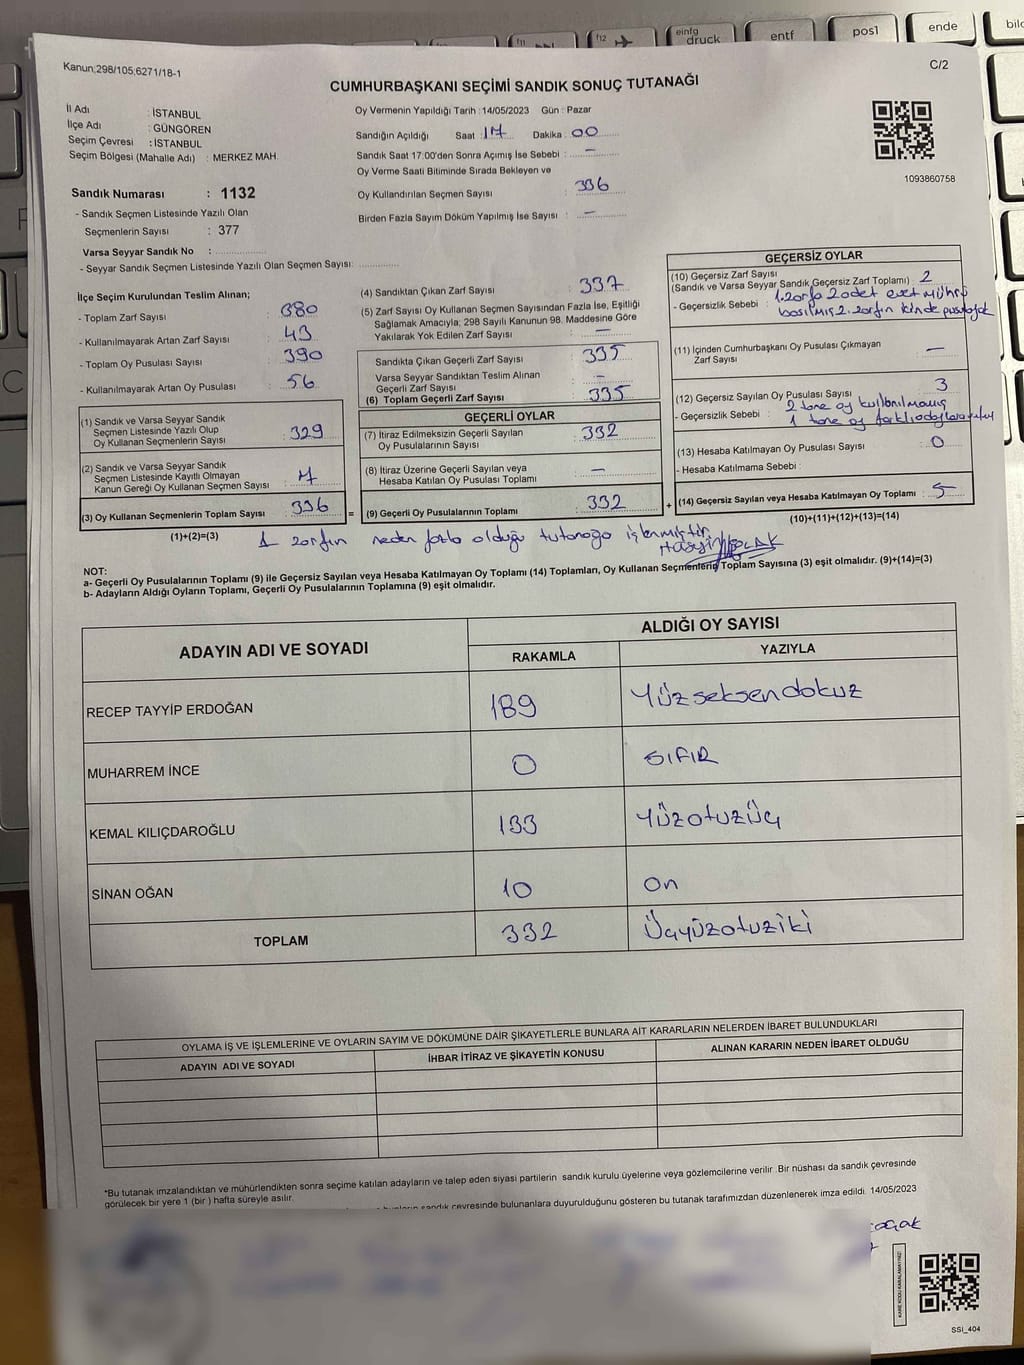 einfg
druck
entf
pos1
ende
f11
f12
Kanun;298/105;6271/18-1
C/2
CUMHURBAŞKANI SEÇİMİ SANDIK SONUÇ TUTANAĞI
İl Adı : İSTANBUL
İlçe Adı : GÜNGÖREN
Seçim Çevresi : İSTANBUL
Seçim Bölgesi (Mahalle Adı) : MERKEZ MAH.
Sandık Numarası : 1132
- Sandık Seçmen Listesinde Yazılı Olan
Seçmenlerin Sayısı : 377
Varsa Seyyar Sandık No :
- Seyyar Sandık Seçmen Listesinde Yazılı Olan Seçmen Sayısı:
Oy Vermenin Yapıldığı Tarih : 14/05/2023 Gün : Pazar
Sandığın Açıldığı Saat : 17 Dakika : 00
Sandık Saat 17:00'den Sonra Açımış İse Sebebi : -
Oy Verme Saati Bitiminde Sırada Bekleyen ve
Oy Kullandırılan Seçmen Sayısı : 336
Birden Fazla Sayım Döküm Yapılmış İse Sayısı : -
1093860758
İlçe Seçim Kurulundan Teslim Alınan;
- Toplam Zarf Sayısı : 380
- Kullanılmayarak Artan Zarf Sayısı : 43
- Toplam Oy Pusulası Sayısı : 390
- Kullanılmayarak Artan Oy Pusulası : 56
(1) Sandık ve Varsa Seyyar Sandık
Seçmen Listesinde Yazılı Olup
Oy Kullanan Seçmenlerin Sayısı : 329
(2) Sandık ve Varsa Seyyar Sandık
Seçmen Listesinde Kayıtlı Olmayan
Kanun Gereği Oy Kullanan Seçmen Sayısı : 7
(3) Oy Kullanan Seçmenlerin Toplam Sayısı : 336
(1)+(2)=(3)
(4) Sandıktan Çıkan Zarf Sayısı : 337
(5) Zarf Sayısı Oy Kullanan Seçmen Sayısından Fazla İse, Eşitliği
Sağlamak Amacıyla; 298 Sayılı Kanunun 98. Maddesine Göre
Yakılarak Yok Edilen Zarf Sayısı : -
Sandıkta Çıkan Geçerli Zarf Sayısı : 335
Varsa Seyyar Sandıktan Teslim Alınan
Geçerli Zarf Sayısı : -
(6) Toplam Geçerli Zarf Sayısı : 335
GEÇERLİ OYLAR
(7) İtiraz Edilmeksizin Geçerli Sayılan
Oy Pusulalarının Sayısı : 332
(8) İtiraz Üzerine Geçerli Sayılan veya
Hesaba Katılan Oy Pusulası Toplamı : -
= (9) Geçerli Oy Pusulalarının Toplamı : 332 +
GEÇERSİZ OYLAR
(10) Geçersiz Zarf Sayısı
(Sandık ve Varsa Seyyar Sandık Geçersiz Zarf Toplamı) : 2
- Geçersizlik Sebebi : 1. zarfa 2 adet evet mührü
basılmış 2. zarfın içinde pusula yok
(11) İçinden Cumhurbaşkanı Oy Pusulası Çıkmayan
Zarf Sayısı : -
(12) Geçersiz Sayılan Oy Pusulası Sayısı : 3
- Geçersizlik Sebebi : 2 tane oy kullanılmamış
1 tane oy farklı adaylara
(13) Hesaba Katılmayan Oy Pusulası Sayısı : 0
- Hesaba Katılmama Sebebi :
(14) Geçersiz Sayılan veya Hesaba Katılmayan Oy Toplamı : 5
(10)+(11)+(12)+(13)=(14)
1 zarfın neden fazla olduğu tutanağa işlenmiştir.
NOT:
a- Geçerli Oy Pusulalarının Toplamı (9) ile Geçersiz Sayılan veya Hesaba Katılmayan Oy Toplamı (14) Toplamları, Oy Kullanan Seçmenlerin Toplam Sayısına (3) eşit olmalıdır. (9)+(14)=(3)
b- Adayların Aldığı Oyların Toplamı, Geçerli Oy Pusulalarının Toplamına (9) eşit olmalıdır.
ADAYIN ADI VE SOYADI
ALDIĞI OY SAYISI
RAKAMLA YAZIYLA
RECEP TAYYİP ERDOĞAN 189 Yüzseksendokuz
MUHARREM İNCE 0 SIFIR
KEMAL KILIÇDAROĞLU 133 Yüzotuzüç
SİNAN OĞAN 10 On
TOPLAM 332 Üçyüzotuziki
OYLAMA İŞ VE İŞLEMLERİNE VE OYLARIN SAYIM VE DÖKÜMÜNE DAİR ŞİKAYETLERLE BUNLARA AİT KARARLARIN NELERDEN İBARET BULUNDUKLARI
ADAYIN ADI VE SOYADI İHBAR İTİRAZ VE ŞİKAYETİN KONUSU ALINAN KARARIN NEDEN İBARET OLDUĞU
*Bu tutanak imzalandıktan ve mühürlendikten sonra seçime katılan adayların ve talep eden siyasi partilerin sandık kurulu üyelerine veya gözlemcilerine verilir. Bir nüshası da sandık çevresinde
görülecek bir yere 1 (bir) hafta süreyle asılır.
sandık çevresinde bulunanlara duyurulduğunu gösteren bu tutanak tarafımızdan düzenlenerek imza edildi. 14/05/2023
KARE KODU KARALAMAYINIZ!
SSİ_404